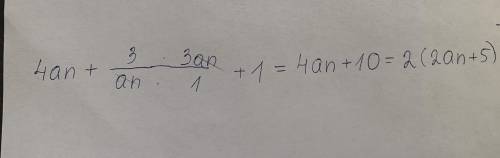 4an + \frac{3 \cdot 3an}{an \cdot 1} + 1 = 4an + 10 = 2(2an+5)